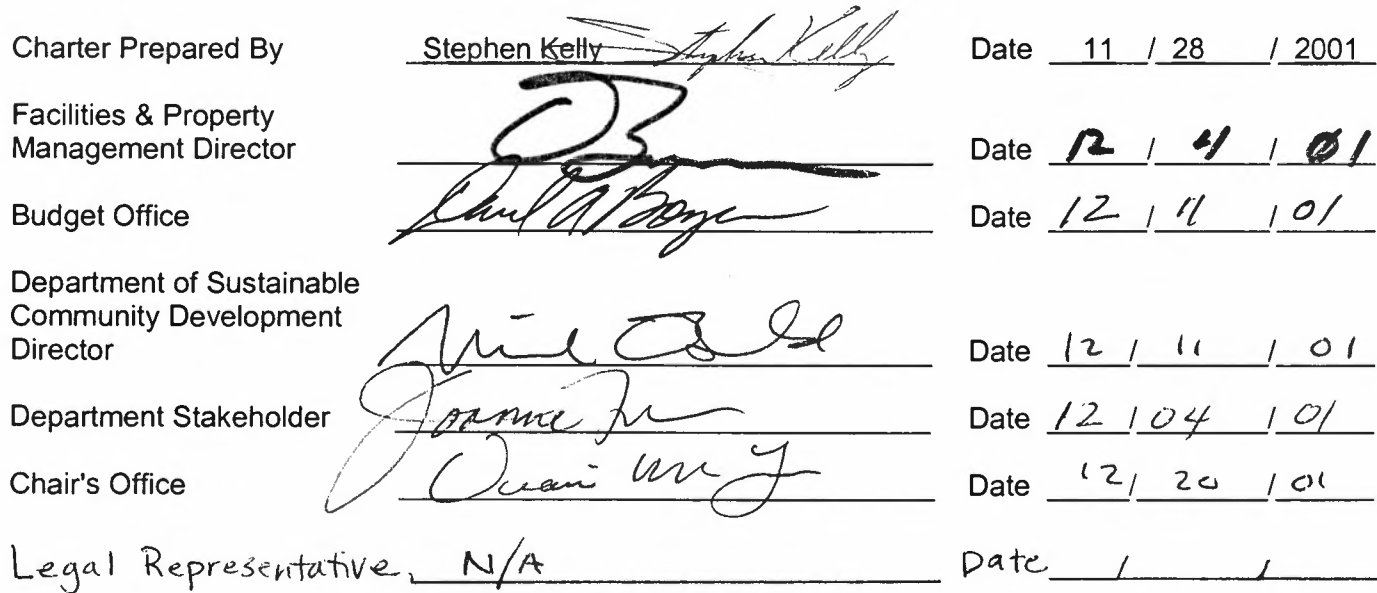 Charter Prepared By Stephen Kelly Stephen Kelly Date 11 / 28 / 2001
Facilities & Property
Management Director Date 12 / 4 / 01
Budget Office Date 12 / 11 / 01
Department of Sustainable
Community Development
Director Date 12 / 11 / 01
Department Stakeholder Joanne Date 12 / 04 / 01
Chair's Office Date 12 / 20 / 01
Legal Representative N/A Date / /